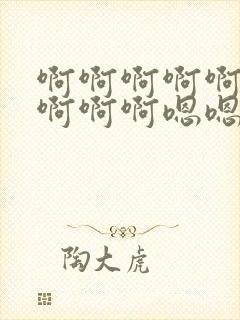 啊啊啊啊啊
啊啊啊嗯嗯
陶大虎